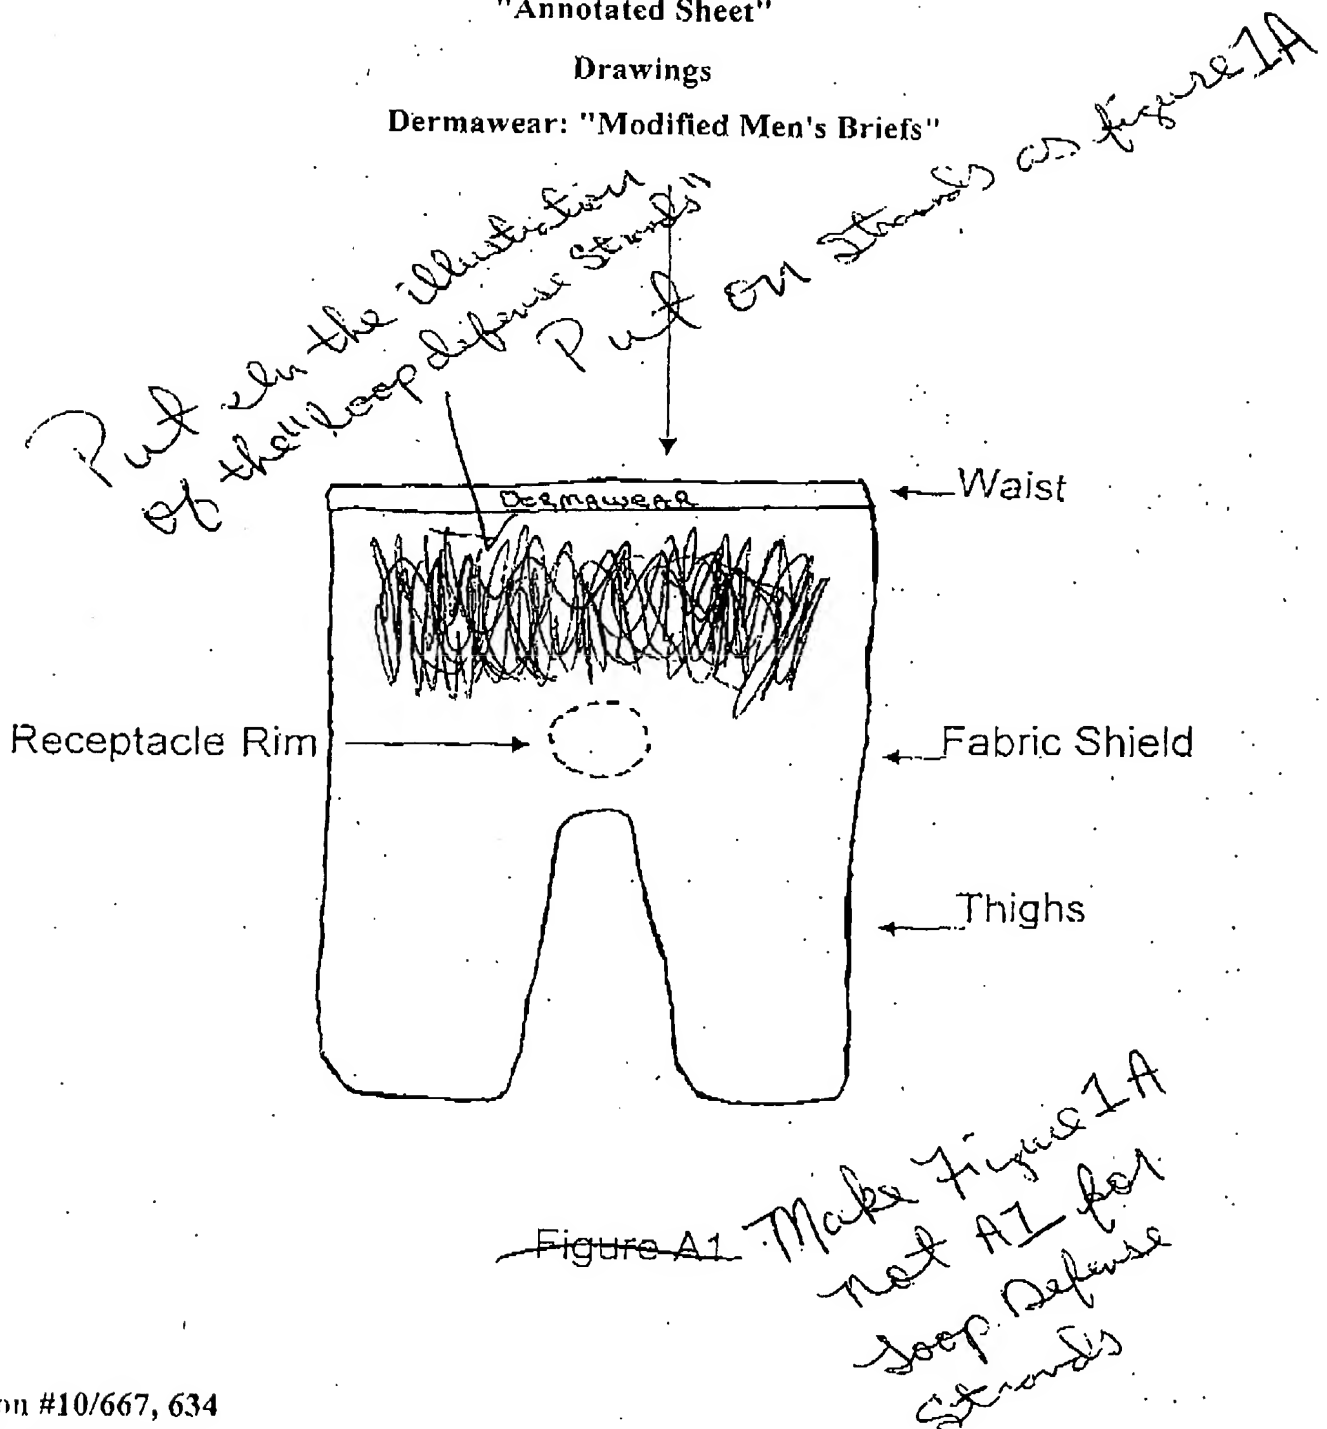 "Annotated Sheet"
Drawings
Dermawear: "Modified Men's Briefs"
Put in the illustration
of the "loop defense Strands"
Put on Strands as figure 1A
DERMAWEAR
Waist
Receptacle Rim
Fabric Shield
Thighs
Figure A1
Make Figure 1A
not A1 for
Loop Defense
Strands
on #10/667, 634